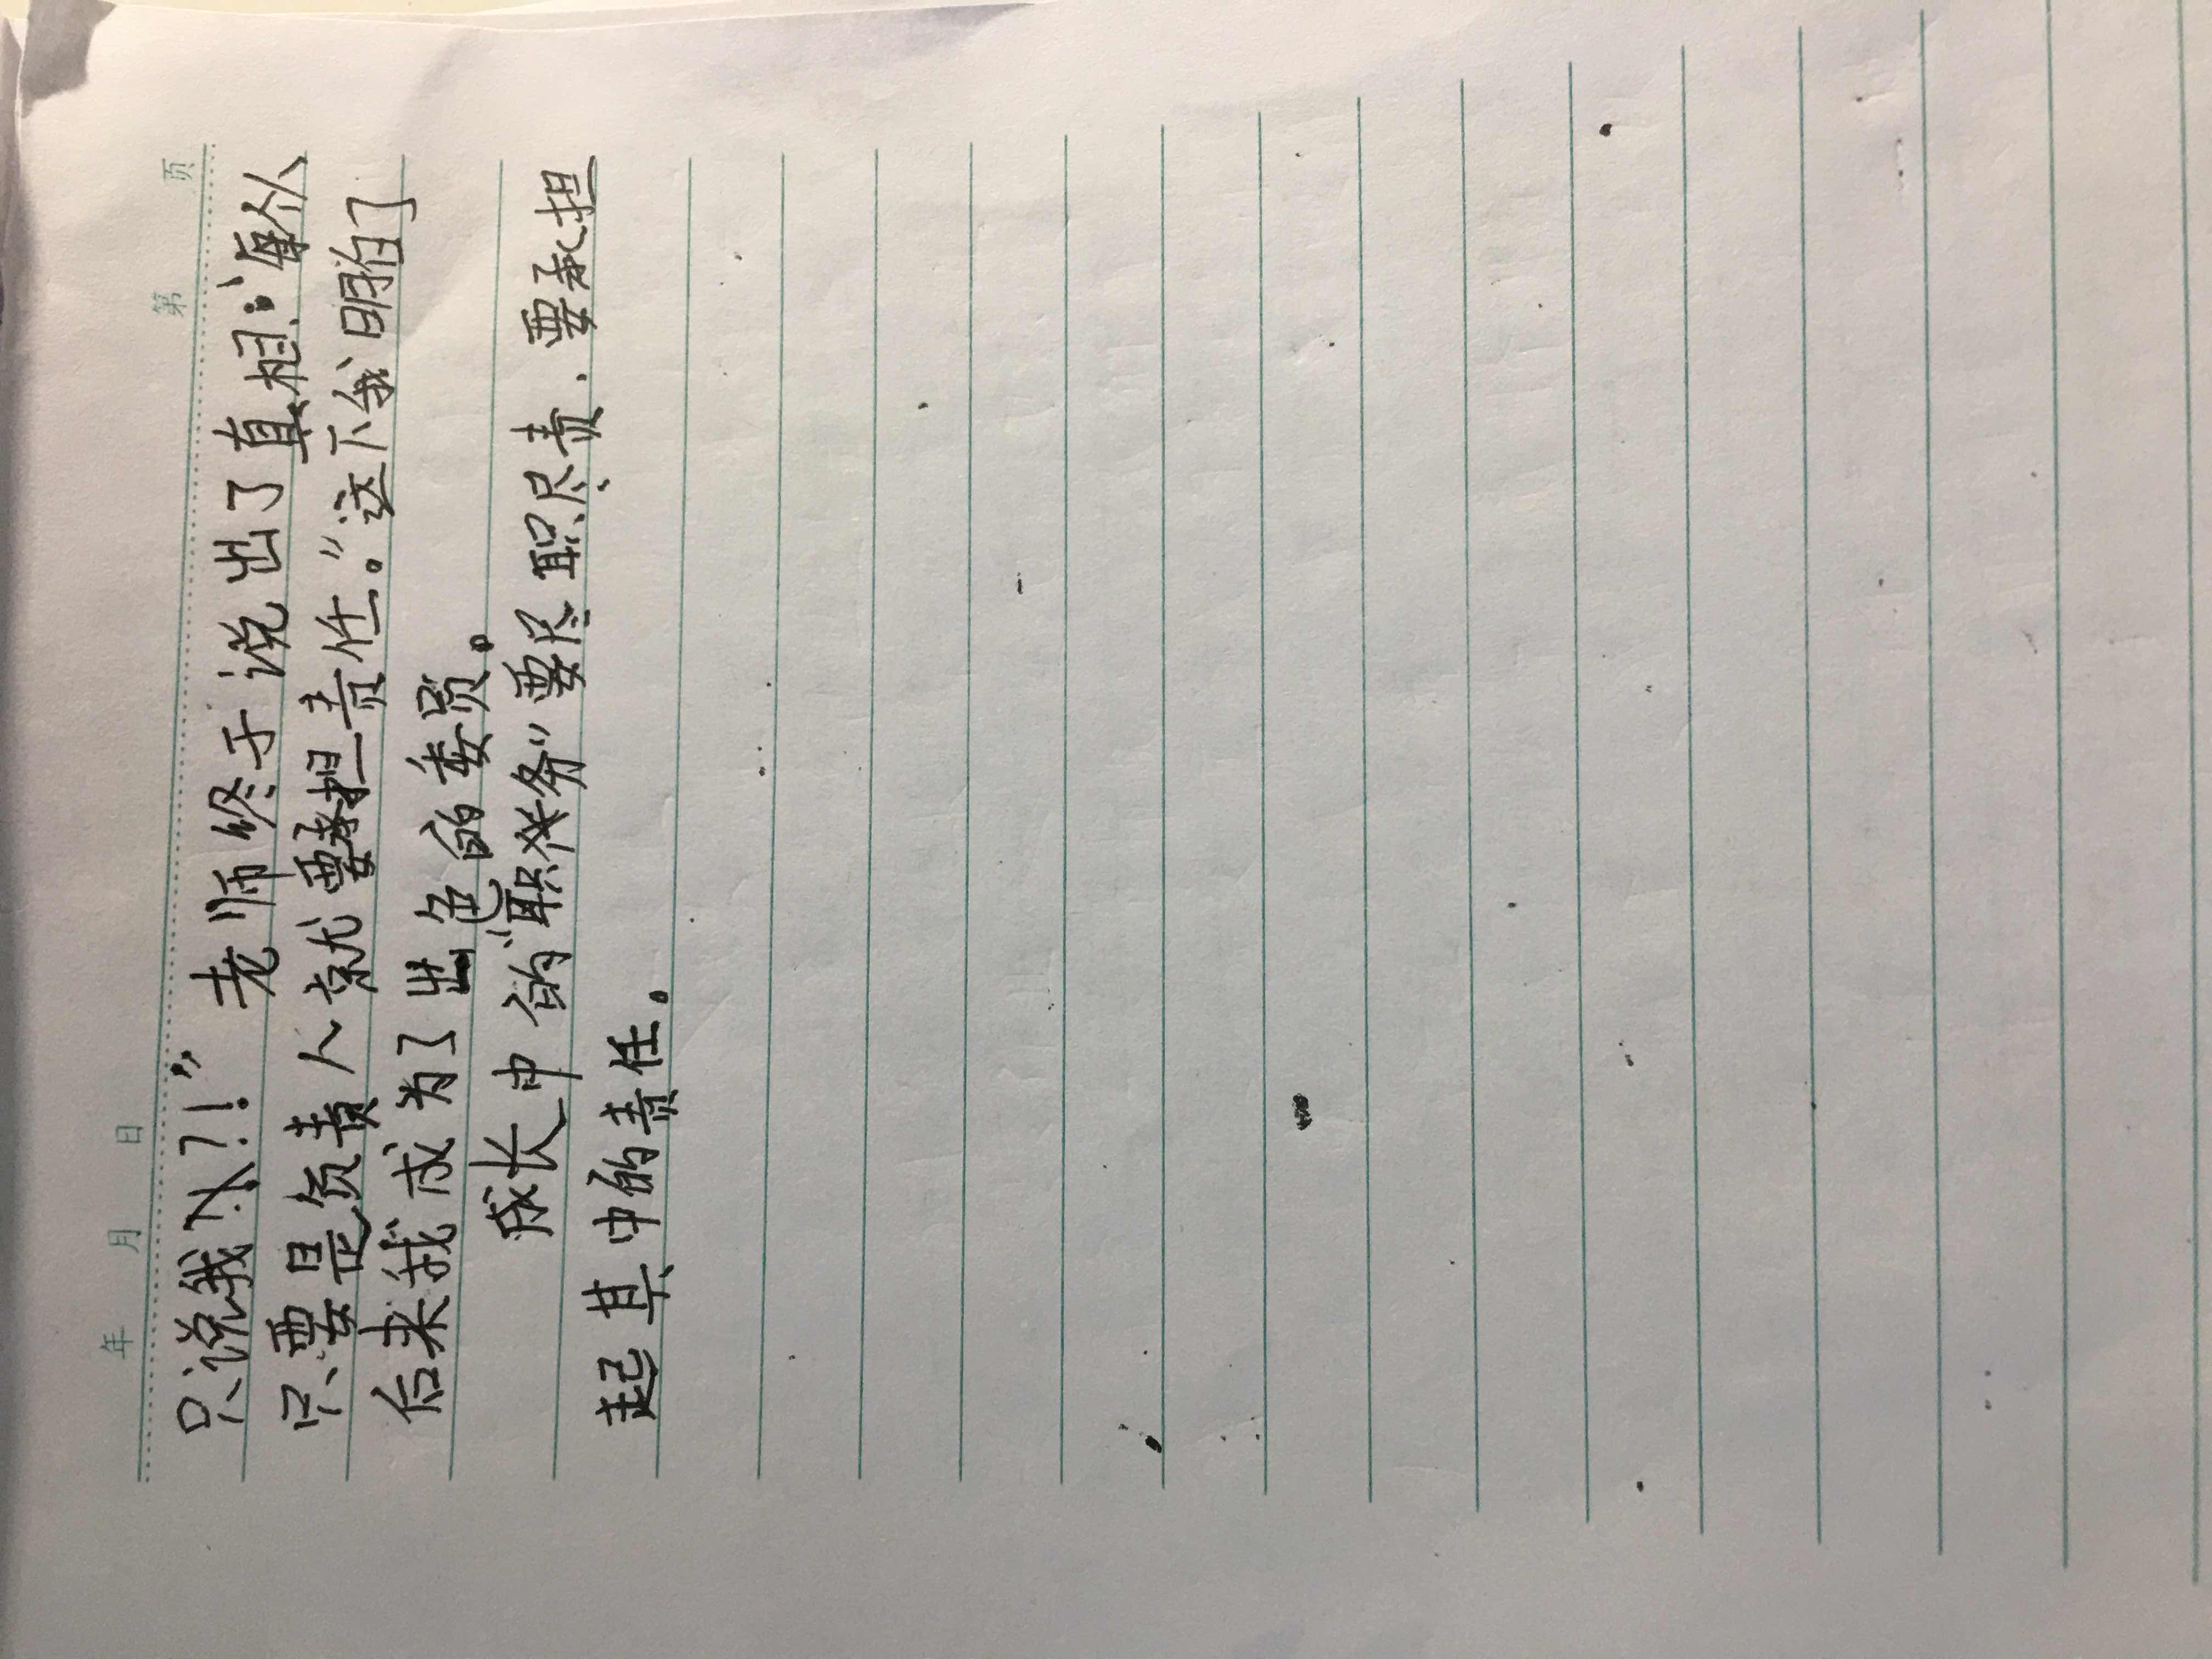 年 月 日 第 页
只说我?!” 老师终于说出了真相:“每个人
只要是负责人就要承担责任。”这下我明白了
后来我成为了出色的委员。
成长中的“职务”要尽职尽责,要承担
起其中的责任。